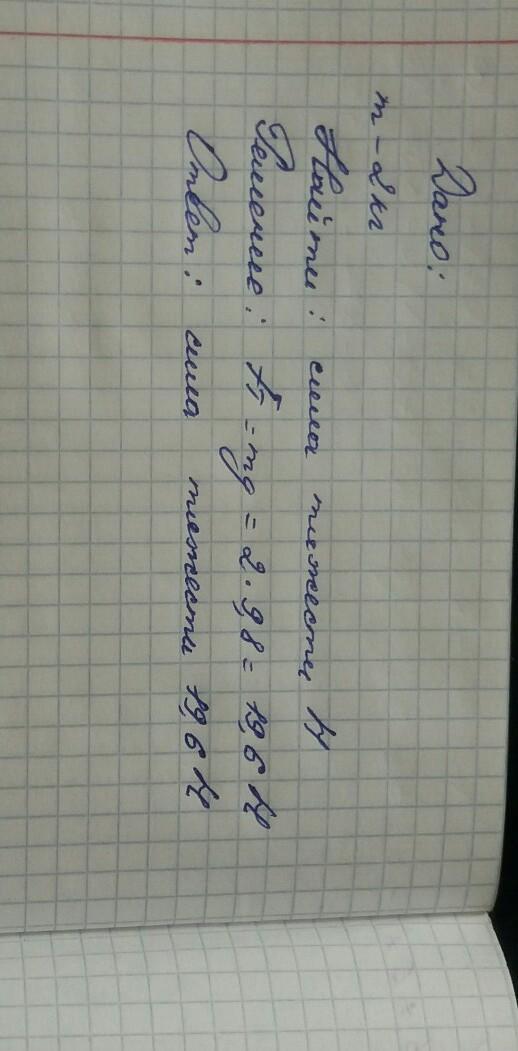 Дано:
m - 2 кг
Найти: сила тяжести Н
Решение: Fт = mg = 2 · 9,8 = 19,6 Н
Ответ: сила тяжести 19,6 Н